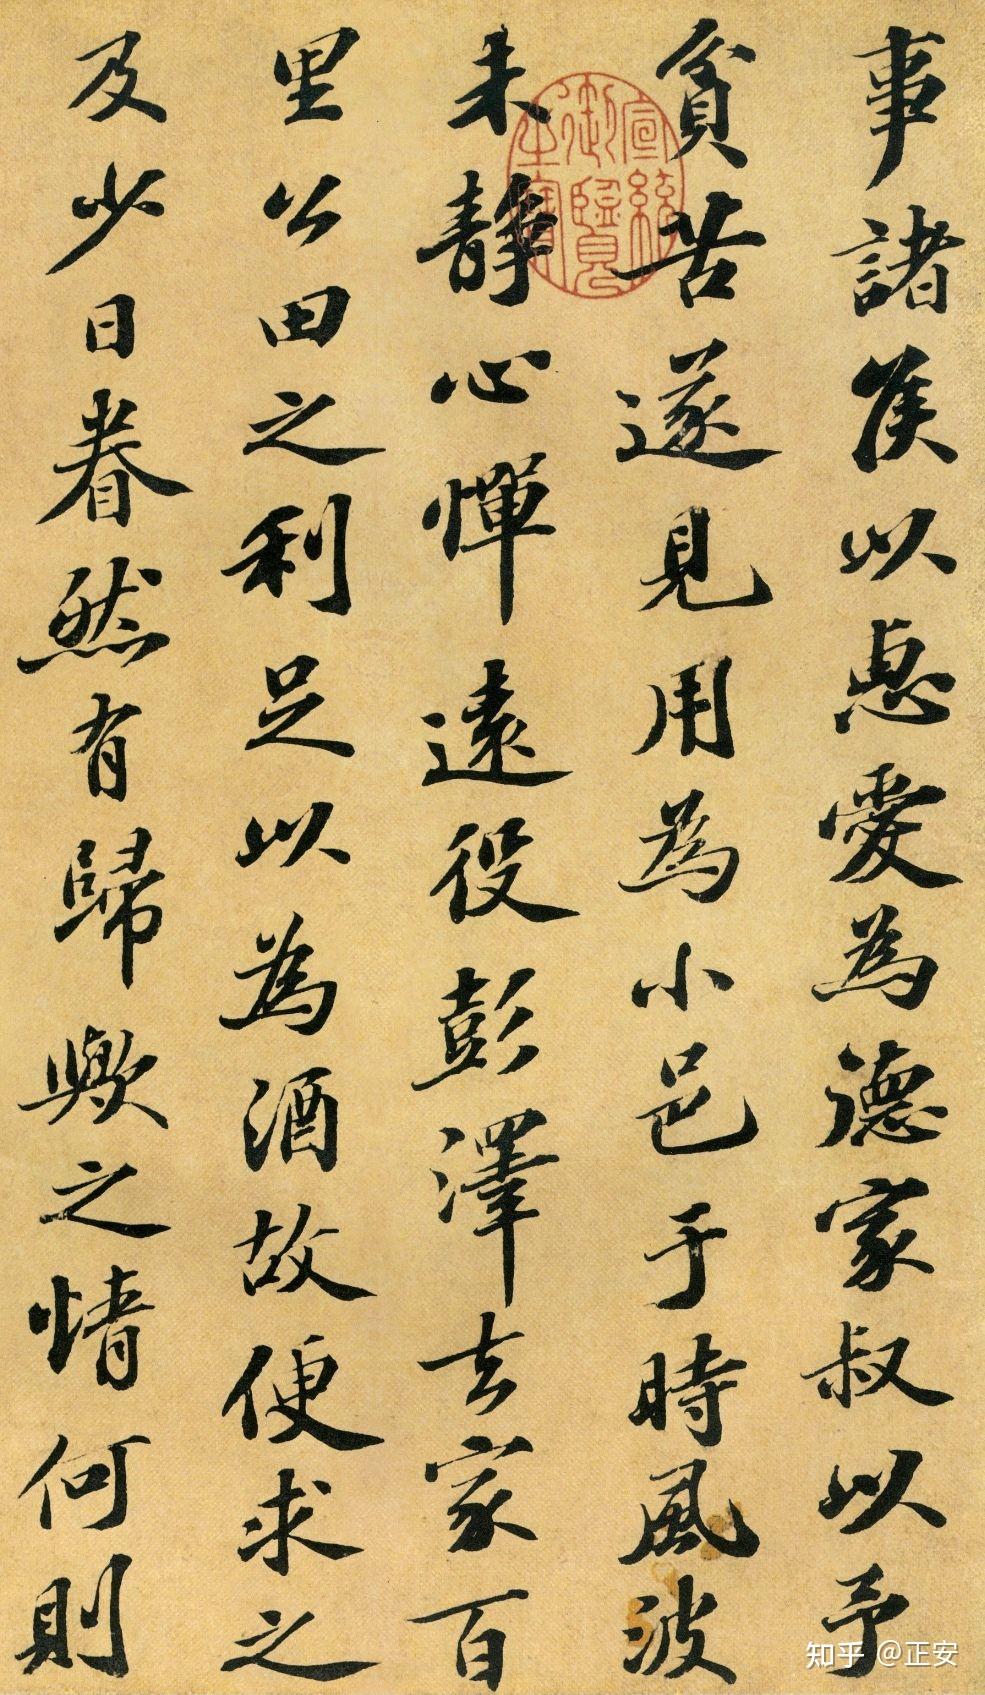 事諸侯以惠愛為德家叔以予
貧苦遂見用為小邑于時風波
未靜心憚遠役彭澤去家百
里公田之利足以為酒故便求之
及少日眷然有歸歟之情何則
宣統御覽之寶
知乎 @正安